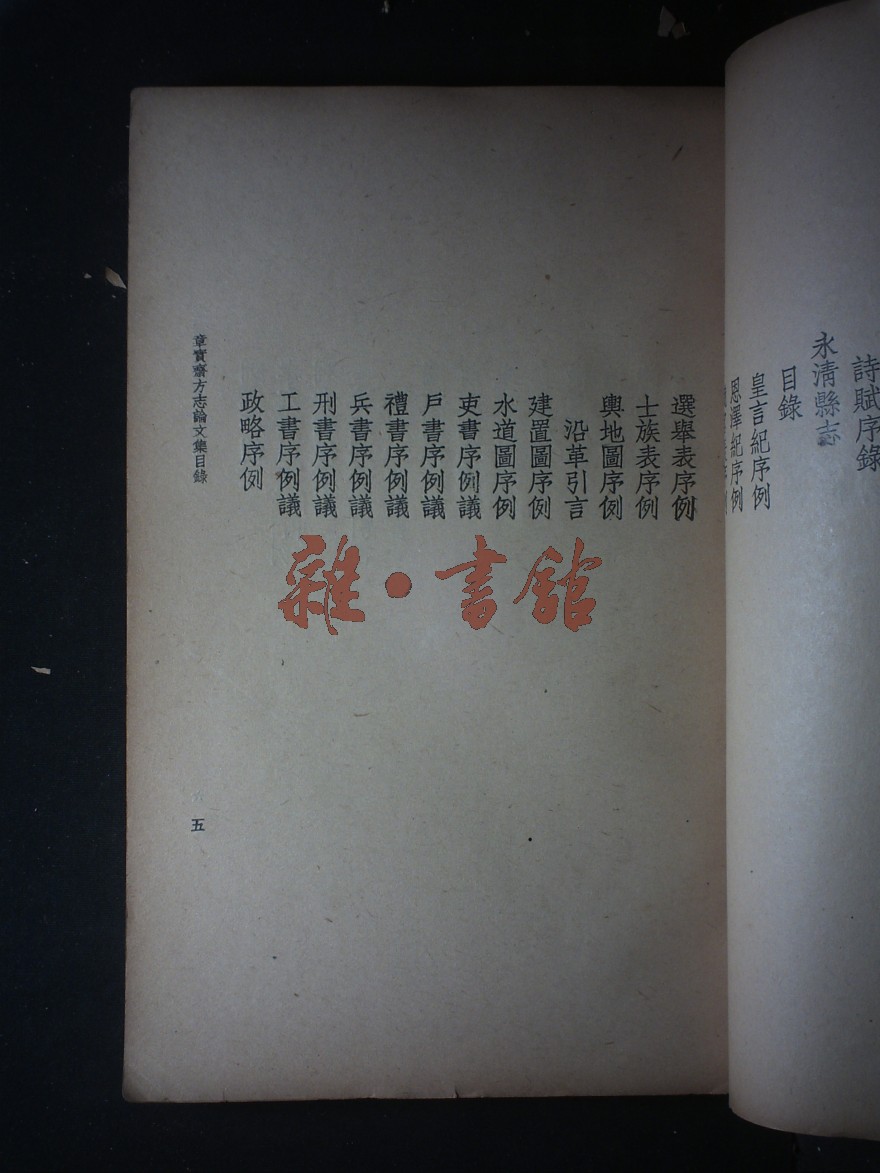 詩賦序錄
永清縣志
目錄
皇言紀序例
恩澤紀序例
選舉表序例
士族表序例
輿地圖序例
沿革引言
建置圖序例
水道圖序例
吏書序例議
戶書序例議
禮書序例議
兵書序例議
刑書序例議
工書序例議
政略序例
章實齋方志論文集目錄
五
雜·書館